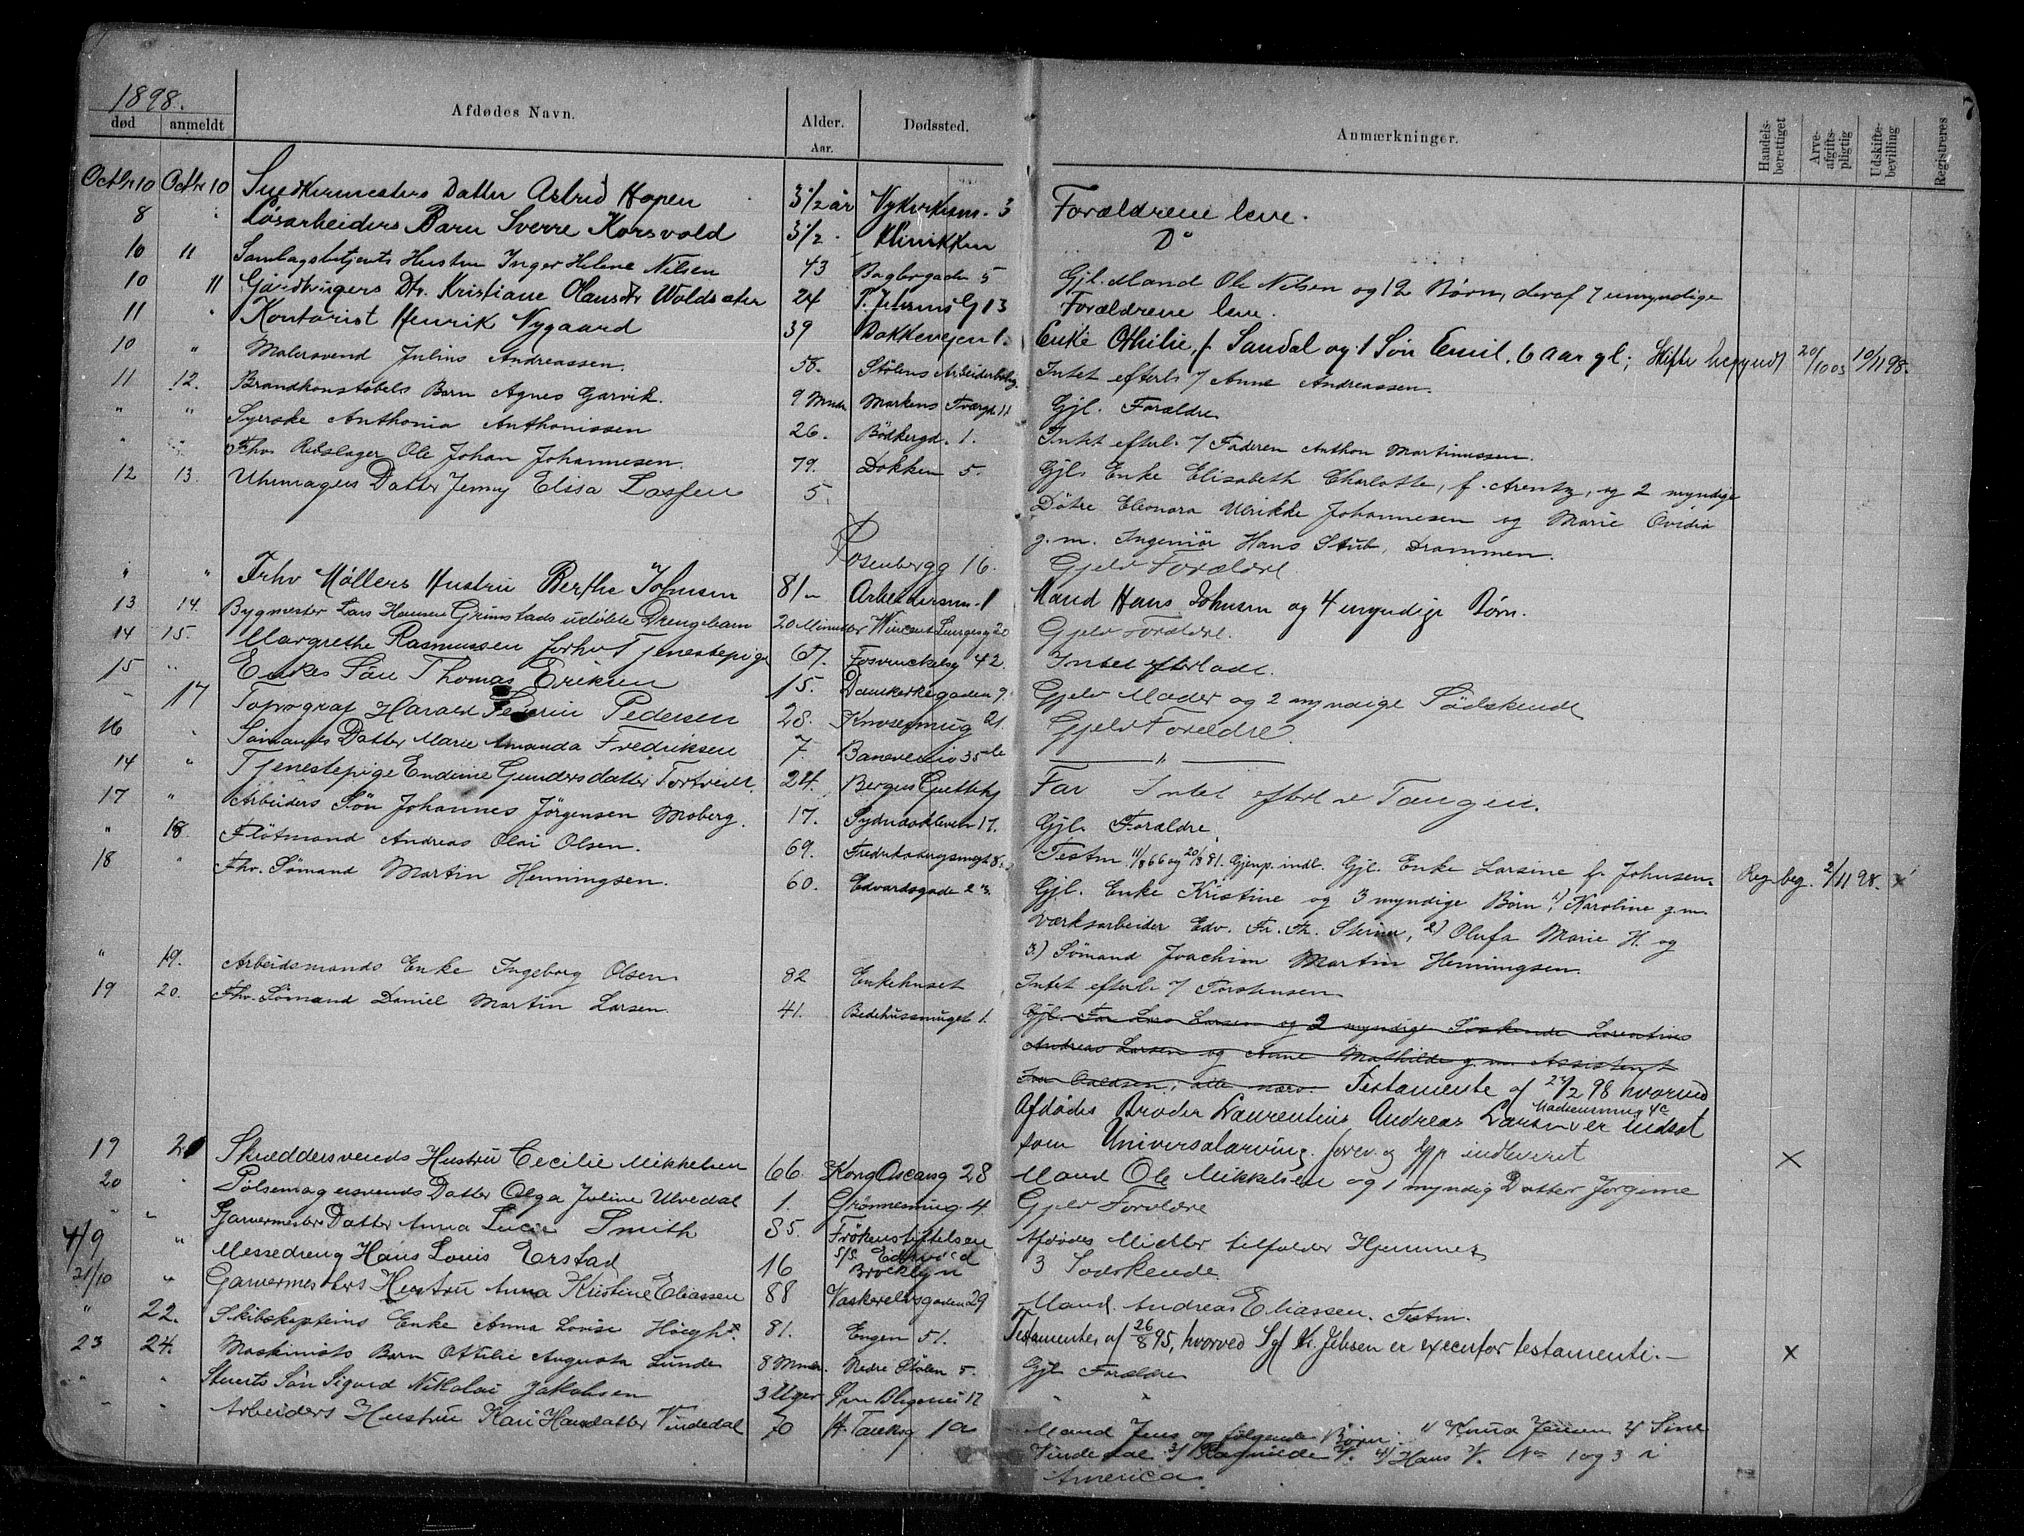 7
1898.
død anmeldt Afdødes Navn. Alder. Aar. Dødssted. Anmærkninger. Handelsberettiget Arveafgiftspligtig Udskiftebevilling Registreres
Octbr 10 Octbr 10 Snedkermesters Datter Astrid Hopen 3 1/2 år Nykirkesm. 3 Forældrene leve.
8 " Løsarbeiders Barn Sverre Korsvold 3 1/2 Klinikken Do
10 11 Samlagsbetjents Hustru Inger Helene Nilsen 43 5 Gjl. Mand Ole Nilsen og 12 Børn, deraf 7 umyndige
10 11 Gårdbrugers Dtr. Kristiane Olansdtr Woldsæter 24 13 Forældrene leve.
11 " Kontorist Henrik Nygaard 39 Bakkeveien 1. Enke Othilie, f. Sandal og 1 Søn Emil, 6 Aar gl; Skifte begyndt 20/10 03 10/11 98.
10 " Malersvend Julius Andreassen. 58. Stølens Arbeiderbolig Intet efterl. / Anne Andreassen.
11 12. Brandkonstabels Barn Agnes Garvik. 9 Mndr Markens Tværgd 11 Gjl. Forældre
" " Syerske Anthonia Anthonissen 26. Bödkergd. 1. Intet efterl. / Faderen Anthon Martinussen.
" " Fhv. Rebslager Ole Johan Johannesen. 79. Dokken 5. Gjl. Enke Elisabeth Charlotte, f. Arentz, og 2 myndige
Døtre Eleonora Ulrikke Johannesen og Marie Ovidia
g. m. Ingeniör Hans Stub, Drammen.
12 13. Uhrmagers Datter Jenny Elisa 5. Rosenbergg 16. Gjelv Forældre
" " Frhv Møllers Hustru Berthe Johnsen 81 Arbeidersm. 1 Mand Hans Johnsen og 4 myndige Børn.
13 14. Bygmester Lars Hansen Grimstads udöbte Drengebarn 20 Minutter Wincent Lunges g 20 Gjelv Forældre.
14 15. Margrethe Rasmussen forhv Tjenestepige 67. 42. Intet efterladt.
15 " Enkes Sön Thomas Eriksen 15. Damkerkegaden 9. Gjelv Moder og 2 myndige Södskende
" 17 Typograf Harald Pedersen 28. Knøsesmug 21. Gjelv Forældre.
16 " Sömands Datter Marie Amanda Fredriksen 7. 35 — " —
14 " Tjenestepige Endime Gundersdatter Tortveit. 24. Bergens Far Intet efterl Tangen.
17 " Arbeiders Søn Johannes Jörgensen Moberg. 17. Sydnæskleven 17. Gjl. Forældre
" 18. Flötmand Andreas Olai Olsen. 69. Testm. 11/8 66 og 20/3 81. Gjenp. indl. Gjl. Enke Larsine f. Johnsen. Reg. beg. 2/11 98. x
18 " Fhv. Sømand Martin Henningsen. 60. Edvardsgade 23. Gjl. Enke Kristine og 3 myndige Børn 1) Karoline g. m.
Værksarbeider Edv. Fr. Th. Steiner, 2) Olufa Marie H. og
3) Sømand Joachim Martin Henningsen.
" 19. Arbeidsmands Enke Ingeborg Olsen 82 Enkehuset Intet efterl. / Torstensen
19 20. Fhv. Sømand Daniel Martin Larsen. 41. Bedehussmuget 1. Gjl. Far Lars Larsen og 2 myndige Søskende Lorentius
Andreas Larsen og Anne Mathilde g. m. Assistent
alle nærv. Testamente af 24/2 98 hvorved
Afdødes Broder Laurentius Andreas Larsen er indsat
som Universalarving. forev. og Gjp indleveret
19 21 Skræddersvends Hustru Cecilie Mikkelsen 66 Kong Oscarsg 28 Mand Ole Mikkelsen og 1 myndig Datter Jørgine x
20 " Pølsemagersvends Datter Olga Juline Ulvedal 1. Grönnesmug 4. Gjelv Forældre
" " Garvermesters Datter Anna Lucie Smith 85. Frökenstiftelsen Afdødes Midler tilfalder Hjemmet
4/9 " Messedreng Hans Louis Erstad 16 S/S. Brocklyn 3 Sødskende
21/10 " Garvermesters Hustru Anna Kristine Eliassen 88 Vaskerelvsgaden 29 Mand Andreas Eliassen. Testm.
" 22. Skibskapteins Enke Anna Lovise Höegh 81. Engen 51. Testamente af 26/8 95, hvorved Sgf Kr. Jebsen er executor testamenti. — x
23 24. Maskinists Barn Ottilie Augusta Lunde 8 Mndr. Nedre Stølen 5. Gjl. Forældre
" " Stuerts Sön Sigurd Nikolai Jakobsen 3 Uger 17 "
" " Arbeiders Hustru Kari Hansdatter Vindedal 70 1a Mand Jens og følgende Börn: 1) Knud Jensen 2)
Vindedal 3) Ragnilde V. 4) Hans V. No 1 og 3 i
America